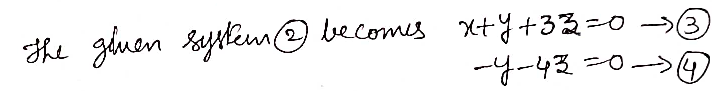 The given system ② becomes x+y+3z=0 → ③
-y-4z=0 → ④